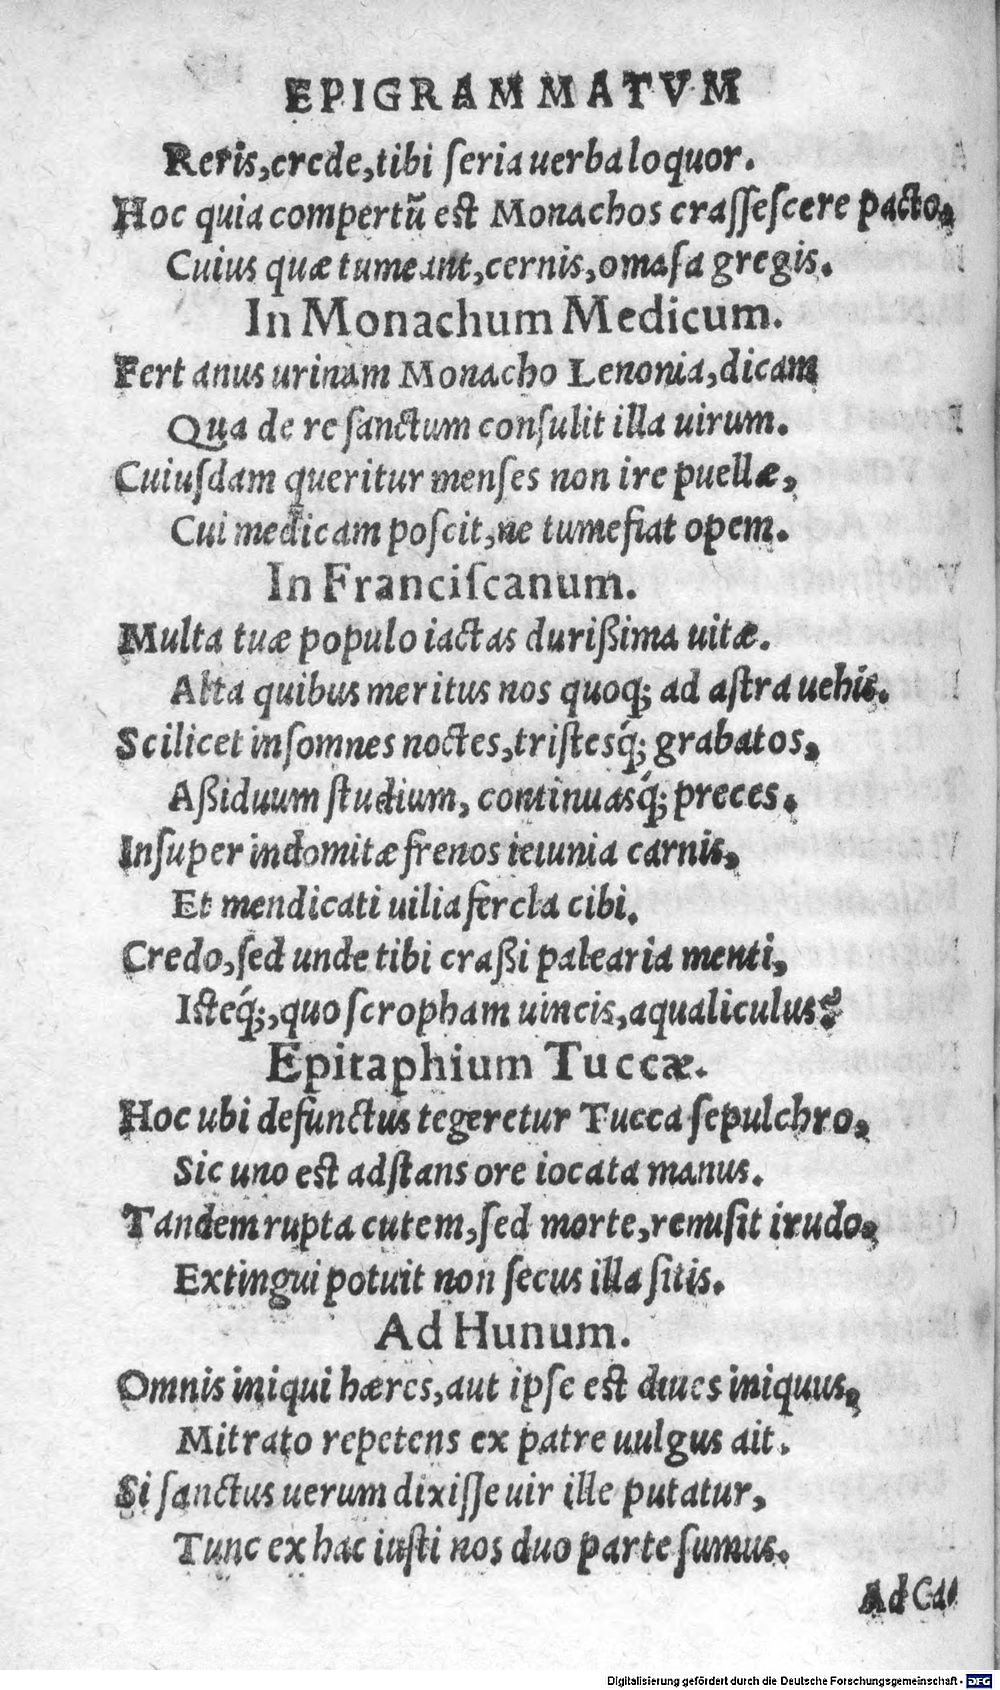 EPIGRAMMATVM
Retis,crede,tibi ſeria uerba loquor.
Hoc quia compertũ est Monachos craſſeſcere pacto,
Cuius quæ tumeant,cernis,omaſa gregis.
In Monachum Medicum.
Fert anus urinam Monacho Lenonia,dicam
Qua de re ſanctum conſulit illa uirum.
Cuiuſdam queritur menſes non ire puellæ,
Cui medicam poſcit,ne tumefiat opem.
In Franciſcanum.
Multa tuæ populo iactas durißima uitæ.
Alta quibus meritus nos quoq; ad aſtra uehis.
Scilicet inſomnes noctes,triſtesq́; grabatos,
Aßiduum ſtudium, continuasq́; preces.
Inſuper indomitæ frenos ieiunia carnis,
Et mendicati uilia fercla cibi.
Credo,ſed unde tibi craßi palearia menti,
Isteq́;,quo ſcropham uincis,aqualiculus?
Epitaphium Tuccæ.
Hoc ubi defunctus tegeretur Tucca ſepulchro,
Sic uno est adſtans ore iocata manus.
Tandem rupta cutem,ſed morte,remiſit irudo,
Extingui potuit non ſecus illa ſitis.
Ad Hunum.
Omnis iniqui hæres,aut ipſe est diues iniquus,
Mitrato repetens ex patre uulgus ait.
Si ſanctus uerum dixiſſe uir ille putatur,
Tunc ex hac iuſti nos duo parte ſumus.
Ad Ca-
Digitalisierung gefördert durch die Deutsche Forschungsgemeinschaft - DFG